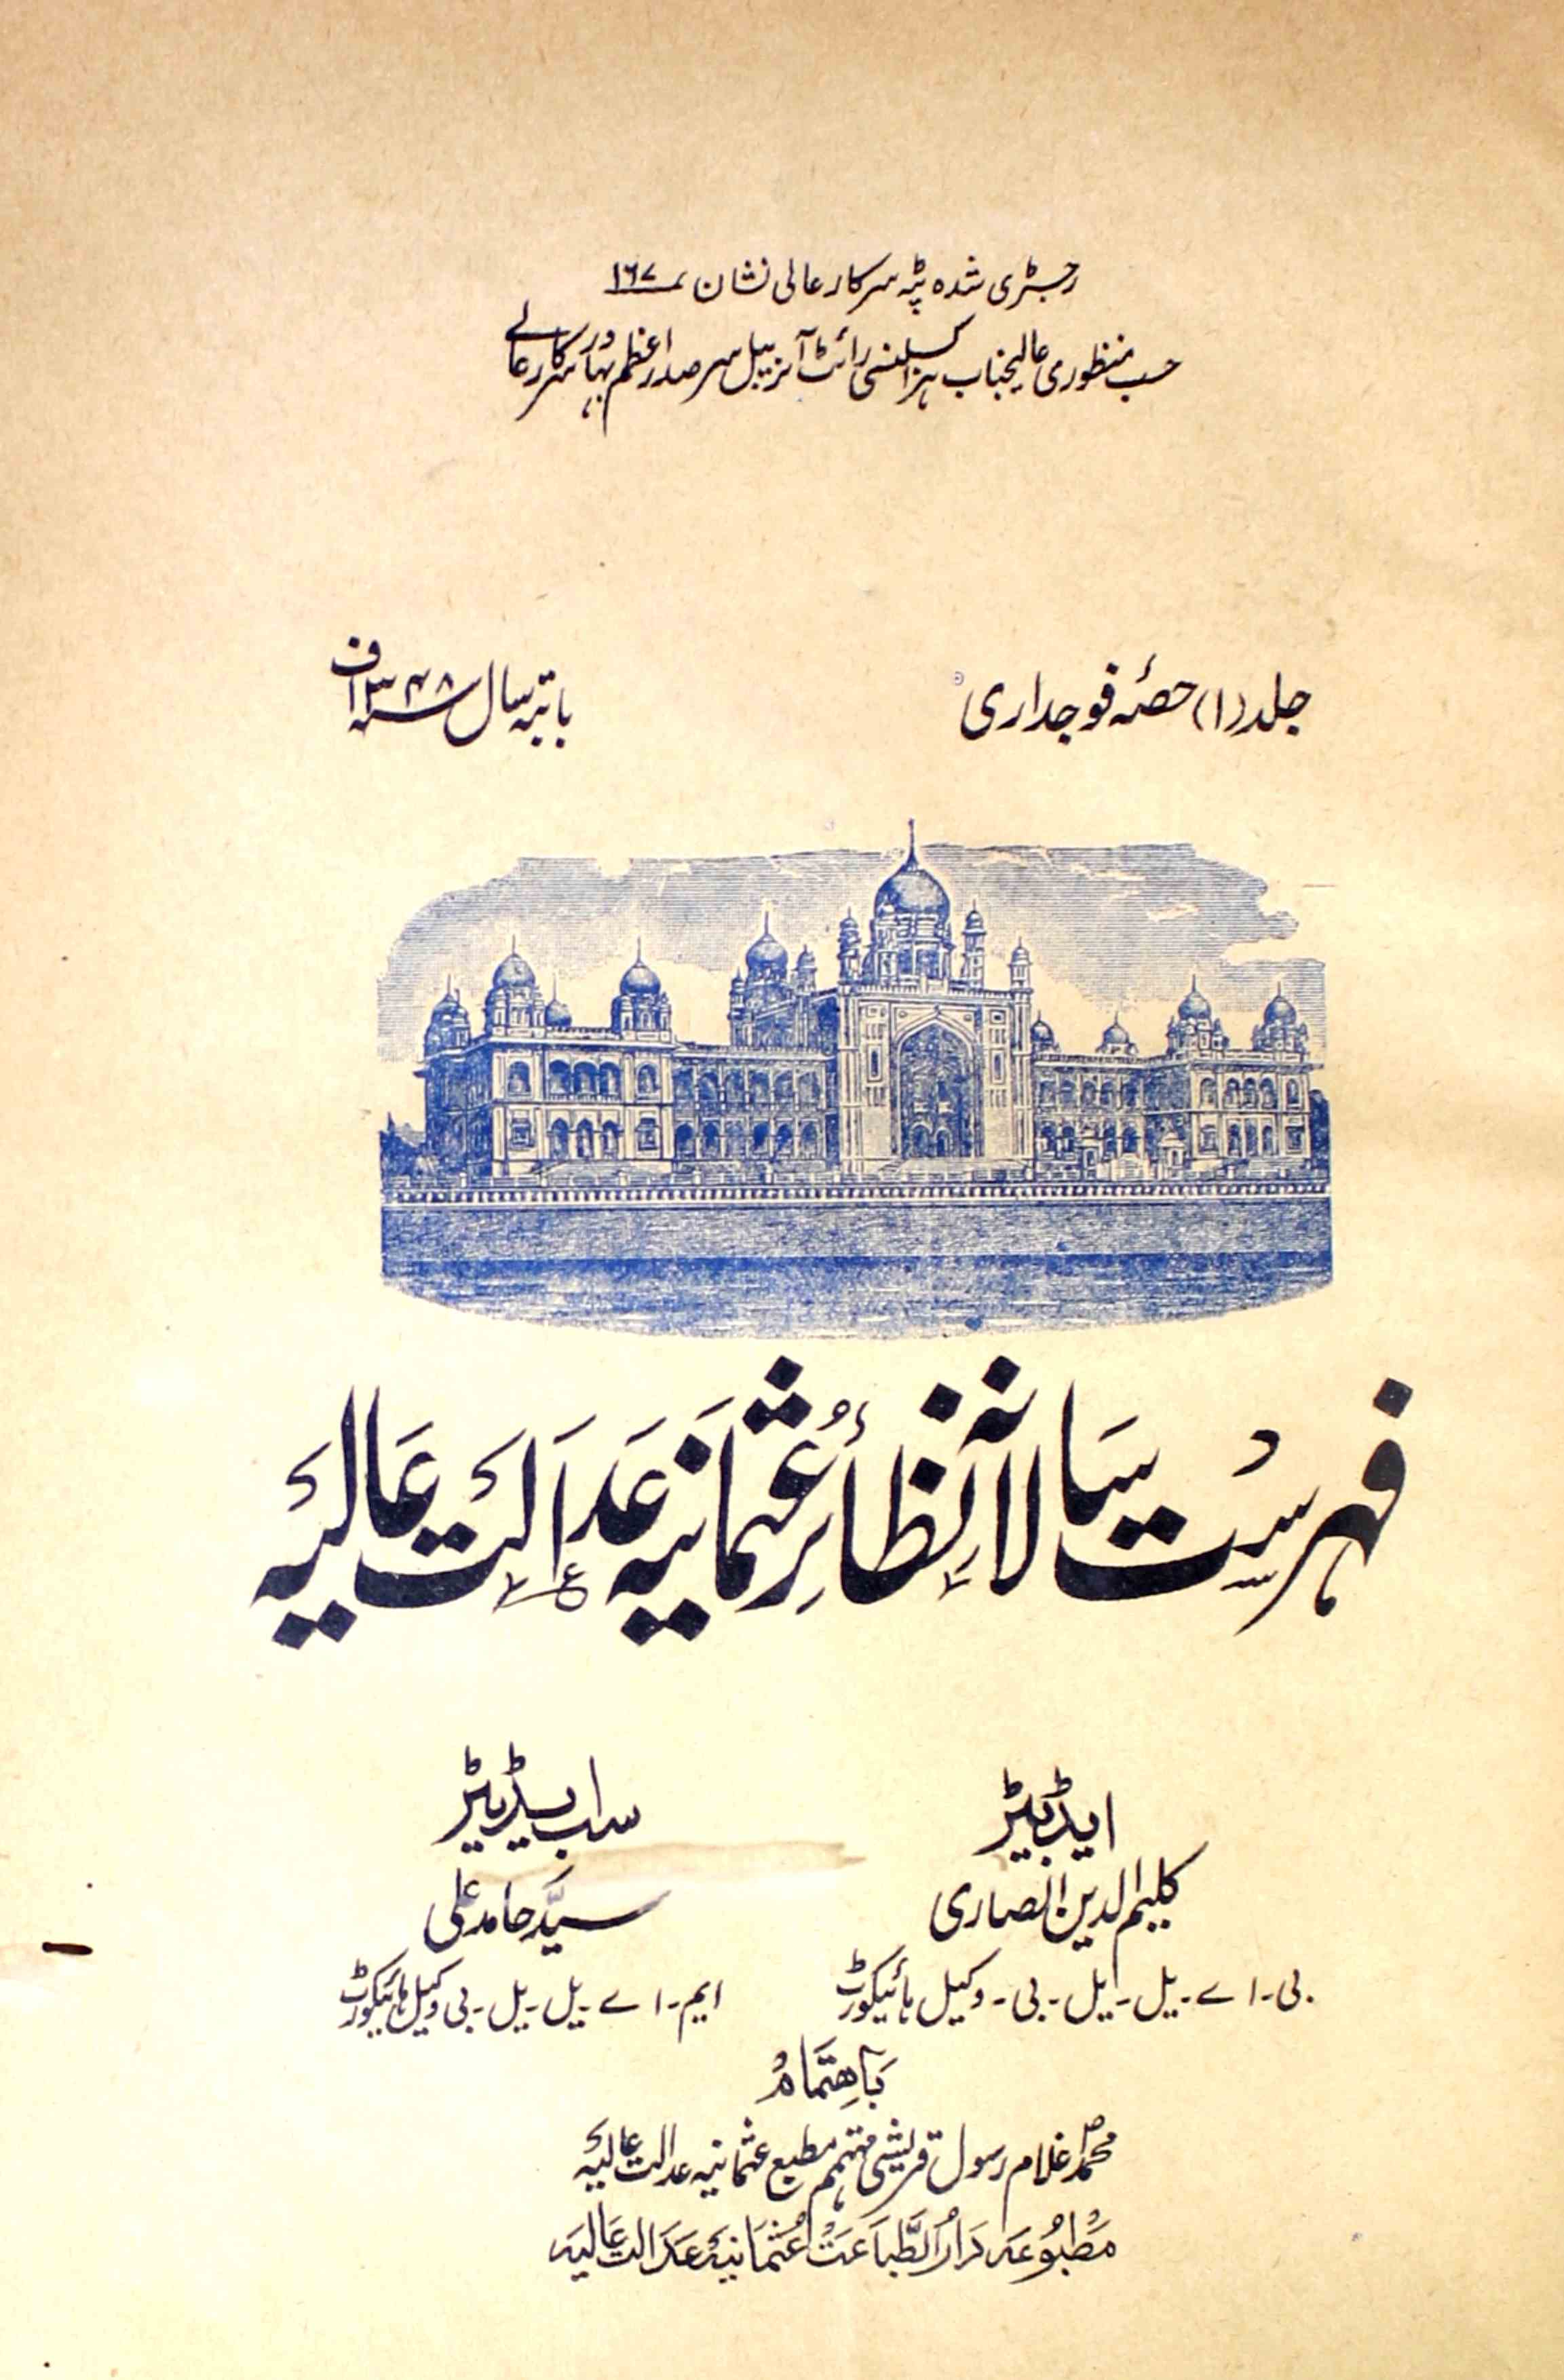 رجسٹری شدہ ٹپہ سرکار عالی نشان ۱۶۷
حسب منظوری عالیجناب ہز اکسلنسی رائٹ آنریبل سر صدر اعظم بہادر سرکار عالے
جلد (۱) حصہٴ فوجداری
بابتہ سال ۱۳۴۸ف
فہرست سالانہ نظائر عثمانیہ عدالت عالیہ
ایڈیٹر
کلیم الدین انصاری
بی-اے-یل-یل-بی-وکیل ہائیکورٹ
سب ایڈیٹر
سیّد حامد علی
ایم-اے-یل-یل-بی وکیل ہائیکورٹ
باہتمام
محمدؐ غلام رسول قریشی مہتمم مطبع عثمانیہ عدالت عالیہ
مطبوعہ دار الطباعت عثمانیہ عدالت عالیہ